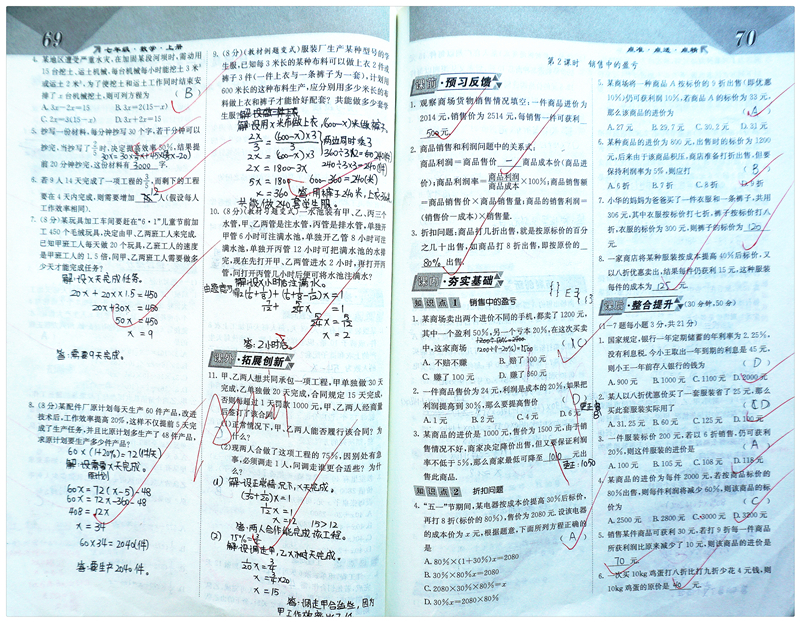 69
七年级·数学·上册
4. 某地区遭受严重水灾,在加固某段河坝时,需动用
15台挖土、运土机械,每台机械每小时能挖土3 m³
或运土2 m³,为了使挖土和运土工作同时结束安
排了x台机械挖土,则可列方程为 ( B )
A. 3x−2x=15 B. 3x=2(15−x)
C. 2x=3(15−x) D. 3x+2x=15
5. 抄写一份材料,每分钟抄写30个字,若干分钟可以
抄完,当抄写了2/5时,决定提高效率50%,结果提
前20分钟抄完,这份材料有 3000 字.
6. 若9人14天完成了一项工程的3/5,而剩下的工程
要在4天内完成,则需要增加 12 人(假设每人
工作效率相同).
7. (8分)某玩具加工车间要赶在“6·1”儿童节前加
工450个毛绒玩具,决定由甲、乙两班工人来完成.
已知甲班工人每天做20个玩具,乙班工人的速度
是甲班工人的1.5倍,问甲、乙两班工人需要做多
少天才能完成任务?
解:设x天完成任务.
20x+20x×1.5=450
20x+30x=450
50x=450
x=9
答:需要9天完成.
8. (8分)某配件厂原计划每天生产60件产品,改进
技术后,工作效率提高20%,这样不仅提前5天完
成了生产任务,并且比原计划多生产了48件产品,
求原计划要生产多少件产品?
60×(1+20%)=72(件/天)
解:设需要x天完成.
60x=72(x-5)-48
60x=72x-360-48
408=12x
x=34
60×34=2040(件)
答:要生产2040件.
9. (8分)(教材例题变式)服装厂生产某种型号的学
生服,已知每3米长的某种布料可以做上衣2件或
裤子3件(一件上衣与一条裤子为一套),计划用
600米长的这种布料生产,应分别用多少米长的布
料做上衣和裤子才能恰好配套?共能做多少套学
生服?
解:设用x米布做上衣,(600-x)米做裤子.
2x/3=(600-x)×3/3
2x=(600-x)×3
2x=1800-3x
5x=1800
x=360
600-360=240(米)
共能做240套学生服.
10. (8分)(教材习题变式)一水池装有甲、乙、丙三个
水管,甲、乙两管是注水管,丙管是排水管,单独开
甲管6小时可注满水池,单独开乙管8小时可注
满水池,单独开丙管12小时可把满水池的水排
完,现在先打开甲、乙两管进水2小时,再打开丙
管,问打开丙管几小时后便可将水池注满水?
解:设x小时后注满水.
x=2
答:2小时后.
课外·拓展创新
11. 甲、乙两人想共同承包一项工程,甲单独做30天
完成,乙单独做20天完成,合同规定15天完成,
否则每超过1天罚款1000元,甲、乙两人经商量
后签订了该合同.
(1)正常情况下,甲、乙两人能否履行该合同?为
什么?
(2)现两人合作了这项工程的75%,因别处有急
事,必须调走1人,问调走谁更合适些?为什
么?
(1) 解:设正常情况下,x天完成.
(1/30+1/20)x=1
1/12 x=1
x=12 15>12
答:两人合作能完成该工程.
x=15
70
点准·点透·点精
第2课时 销售中的盈亏
课前·预习反馈
1. 观察商场货物销售情况填空:一件商品进价为
2014元,销售价为2514元,每销售一件可获利
500元.
2. 商品销售和利润问题中的关系式:
商品利润=商品售价 − 商品成本价(商品进
价);商品利润率=商品利润/商品成本×100%;商品销售额
=商品销售价×商品销售量;商品的销售利润=
(销售价−成本价)×销售量.
3. 折扣问题:商品打几折出售,就是按原标价的百分
之几十出售,如商品打8折出售,即按原价的
80% 出售.
课中·夯实基础
知识点1 销售中的盈亏
1. 某商场卖出两个进价不同的手机,都卖了1200元,
其中一个盈利50%,另一个亏本20%,在这次买卖
中,这家商场 ( C )
A. 不赔不赚 B. 赔了100元
C. 赚了100元 D. 赚了360元
2. 一件商品售价为24元,利润是成本的20%,如果把
利润提高到30%,那么要提高售价
A. 1元 B. 2元 C. 4元 D. 6元
3. 某商品的进价为1000元,售价为1500元,由于销
售情况不好,商家决定降价出售,但又要保证利润
率不低于5%,那么商家最低可降至 元出
售此商品.
更正:1050
知识点2 折扣问题
4. “五一”节期间,某电器按成本价提高30%后标价,
再打8折(标价的80%),售价为2080元,设该电器
的成本价为x元,根据题意,下面所列方程正确的
是 ( A )
A. 80%×(1+30%)x=2080
B. 30%×80%x=2080
C. 2080×30%×80%=x
D. 30%x=2080×80%
5. 某商场将一种商品A按标价的9折出售(即优惠
10%)仍可获利润10%,若商品A的标价为33元,
那么该商品的进价为 ( A )
A. 27元 B. 29.7元 C. 30.2元 D. 31元
6. 某种商品的进价为800元,出售时的标价为1200
元,后来由于该商品积压,商店准备打折出售,但要
保持利润率为5%,则应打 ( B )
A. 6折 B. 7折 C. 8折 D. 9折
7. 小华的妈妈为爸爸买了一件衣服和一条裤子,共用
306元,其中衣服按标价打七折,裤子按标价打八
折,衣服的标价为300元,则裤子的标价为 120
元.
8. 一家商店将某种服装按成本提高40%后标价,又
以八折优惠卖出,结果每件仍获利15元,这种服装
每件的成本为 125 元.
课后·整合提升 (30分钟,50分)
(1~7题每小题3分,共21分)
1. 国家规定,银行一年定期储蓄的年利率为2.25%,
没有利息税,今小王取出一年到期的利息是45元,
则小王一年前存入银行的钱为 ( D )
A. 900元 B. 1000元 C. 1100元 D. 2000元
2. 某人以八八折优惠价买了一套服装省了25元,那么
买此套服装实际用了 ( D )
A. 31.25元 B. 60元 C. 125元 D. 100元
3. 一件服装标价200元,若以6折销售,仍可获利
20%,则这件服装的进价是 ( A )
A. 100元 B. 105元 C. 108元 D. 118元
4. 某商品的进价为每件2000元,若按商品标价的
80%出售,则每件利润将减少60%,则该商品的标
价为 ( C )
A. 2500元 B. 2800元 C. 3000元 D. 3200元
5. 销售某件商品可获利30元,若打9折每一件商品
所获利润比原来减少了10元,则该商品的进价是
70 元.
6. 一次买10kg鸡蛋打八折比打九折少花4元钱,则
10kg鸡蛋的原价是 40 元.